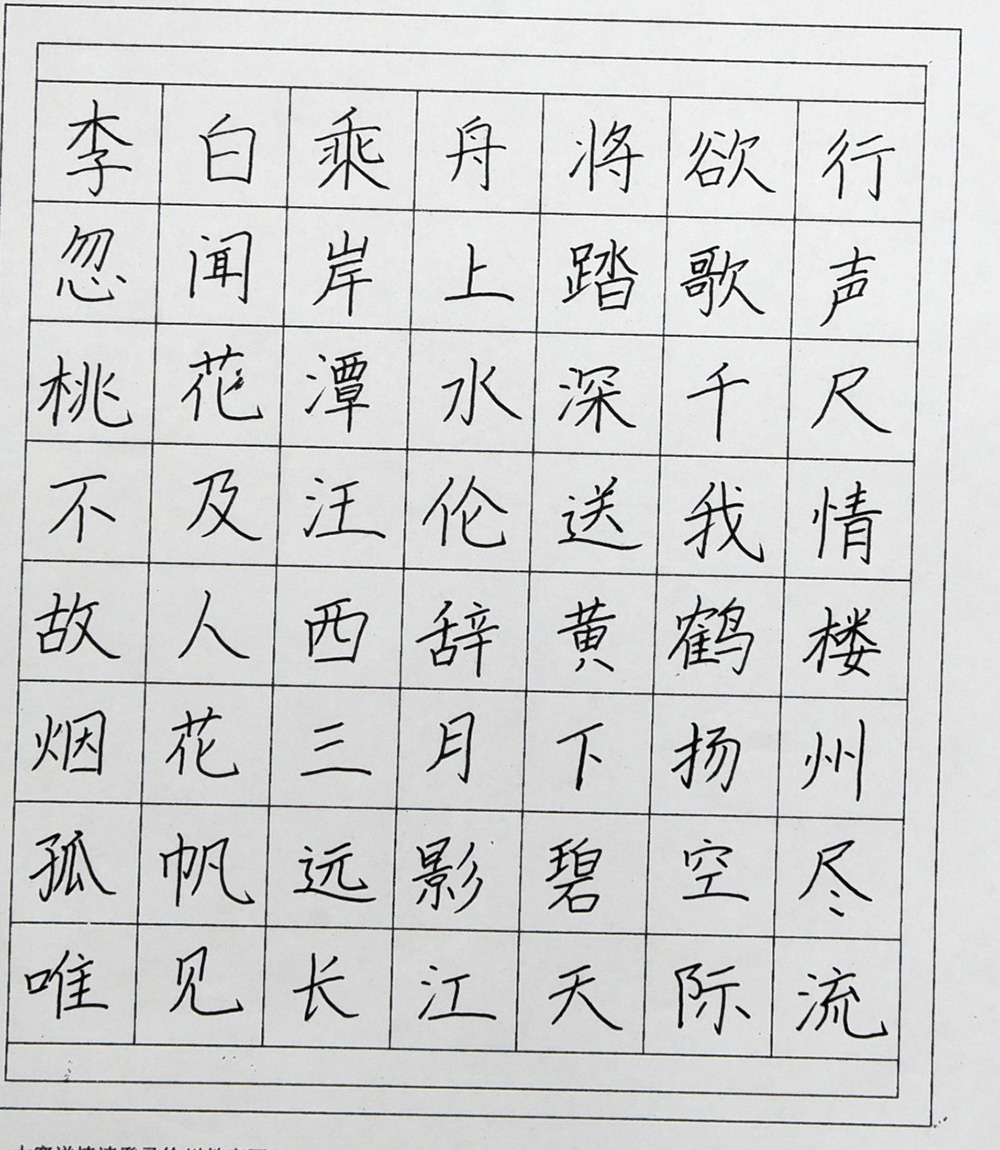 李白乘舟将欲行
忽闻岸上踏歌声
桃花潭水深千尺
不及汪伦送我情
故人西辞黄鹤楼
烟花三月下扬州
孤帆远影碧空尽
唯见长江天际流